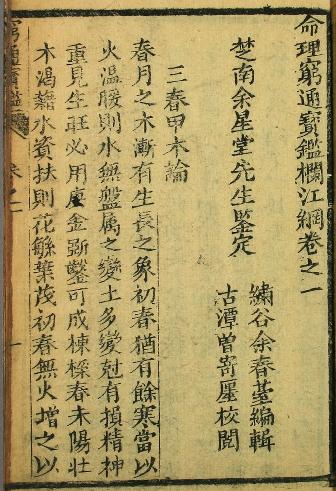 命理窮通寶鑑欄江網卷之一
楚南余星堂先生鑒定
繡谷余春臺編輯
古潭曾寄壓校閱
三春甲木論
春月之木漸有生長之象初春猶有餘寒當以
火溫暖則水無盤屈之變土多變尅有損精神
重見生旺必用庚金斵鑿可成棟樑春末陽壯
木渴藉水資扶則花繇葉茂初春無火增之以
窮通寶鑑
卷之一
一